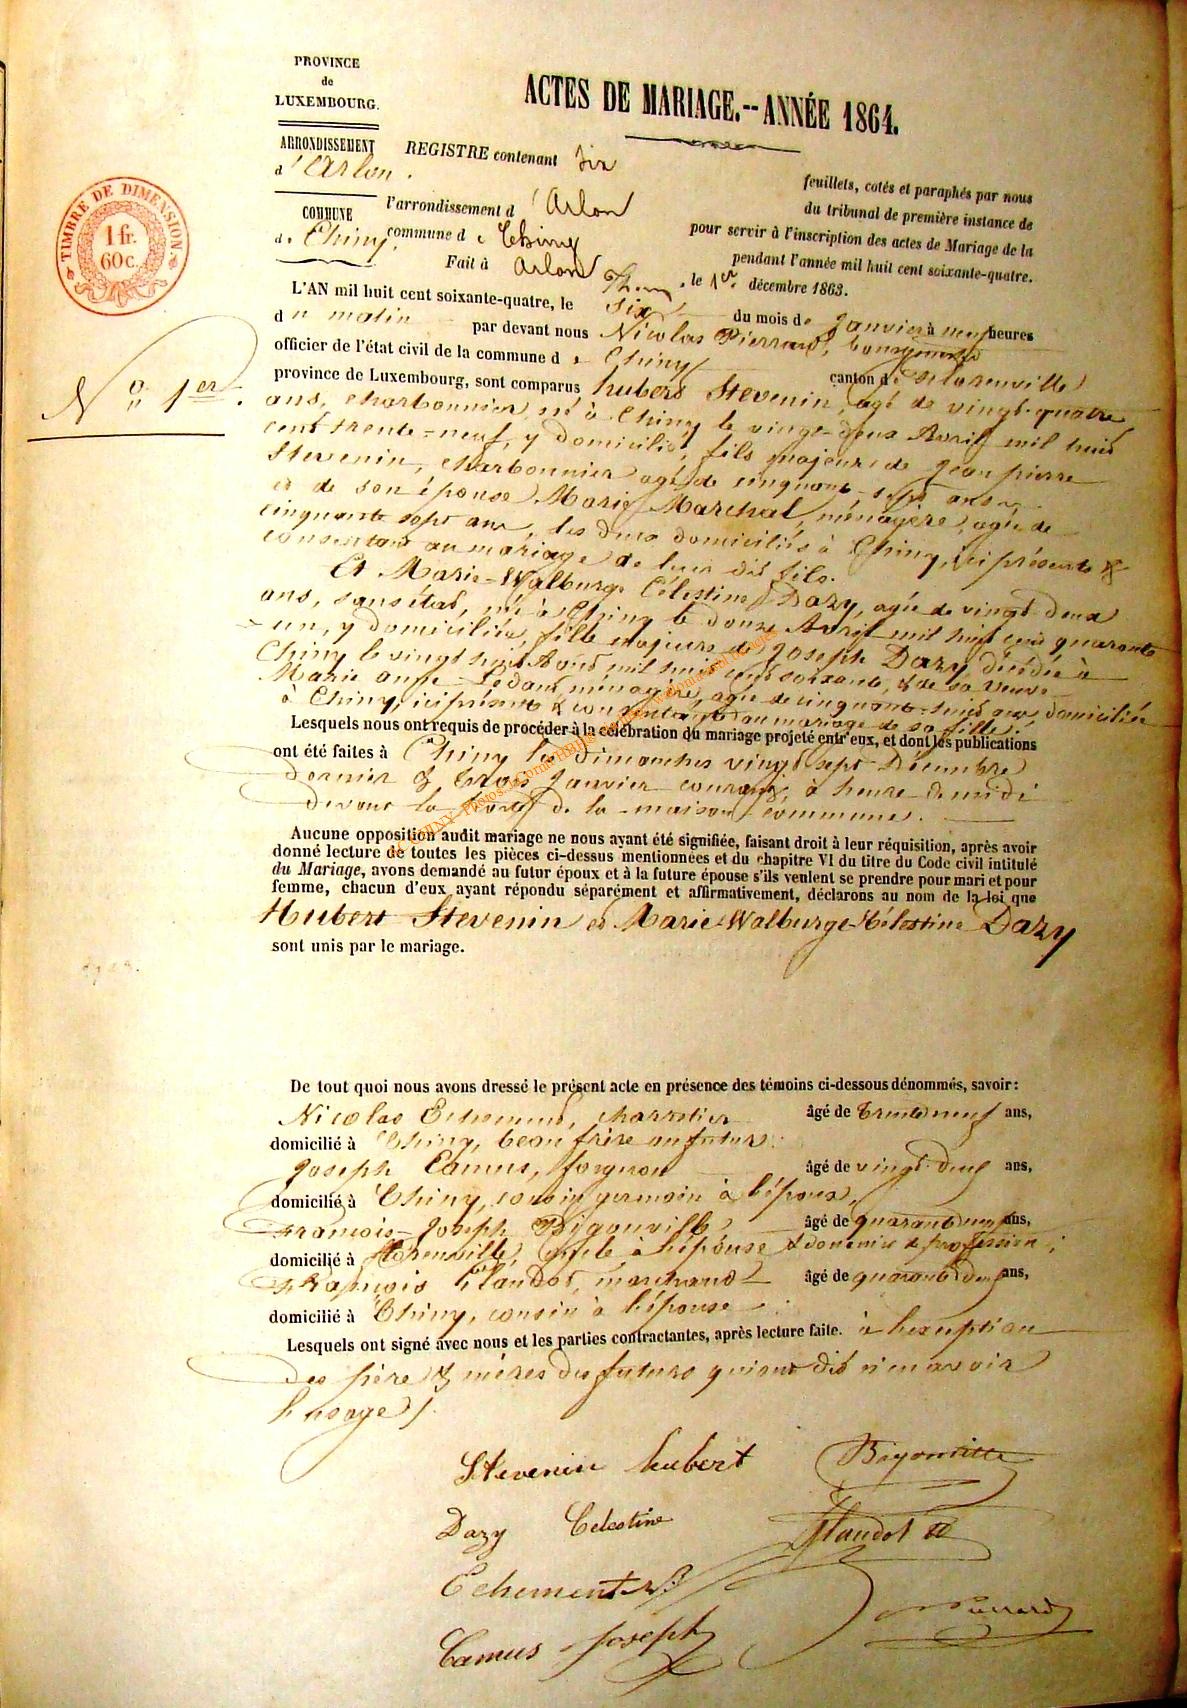 PROVINCE
de
LUXEMBOURG.
ACTES DE MARIAGE.--ANNÉE 1864.
ARRONDISSEMENT
d'Arlon.
REGISTRE contenant six
feuillets, cotés et paraphés par nous
COMMUNE
de Chiny.
l'arrondissement d'Arlon
du tribunal de première instance de
commune de Chiny
pour servir à l'inscription des actes de Mariage de la
pendant l'année mil huit cent soixante-quatre.
Fait à Arlon, le 1er décembre 1863.
TIMBRE DE DIMENSION
1 fr.
60 c.
N° 1er.
L'AN mil huit cent soixante-quatre, le six du mois de Janvier à neuf heures
du matin par devant nous Nicolas Pierrard, bourgmestre
officier de l'état civil de la commune de Chiny canton de Florenville
province de Luxembourg, sont comparus hubert Stevenin, agé de vingt-quatre
ans, charbonnier, né à Chiny le vingt-deux Avril mil huit
cent trente-neuf, y domicilié, fils majeur de Jean pierre
Stevenin, charbonnier agé de cinquante-sept ans
et de son épouse Marie Marchal, ménagère, agée de
cinquante sept ans, les deux domiciliés à Chiny, ici présents &
consentant au mariage de leur dit fils.
Et Marie-Walburge Célestine Dazy, agée de vingt deux
ans, sans état, née à Chiny le douze Avril mil huit cent quarante
-un, y domiciliée, fille majeure de Joseph Dazy, décédé à
Chiny le vingt huit Août mil huit cent soixante, & de sa veuve
Marie anne ménagère, agée de cinquante-huit ans domiciliée
à Chiny, ici présente & consentante au mariage de sa fille.
Lesquels nous ont requis de procéder à la célébration du mariage projeté entr'eux, et dont les publications
ont été faites à Chiny les dimanches vingt sept Décembre
dernier & trois Janvier courant, à heure de midi
devant la porte de la maison commune.
Aucune opposition audit mariage ne nous ayant été signifiée, faisant droit à leur réquisition, après avoir
donné lecture de toutes les pièces ci-dessus mentionnées et du chapitre VI du titre du Code civil intitulé
du Mariage, avons demandé au futur époux et à la future épouse s'ils veulent se prendre pour mari et pour
femme, chacun d'eux ayant répondu séparément et affirmativement, déclarons au nom de la loi que
Hubert Stevenin et Marie-Walburge-Célestine Dazy
sont unis par le mariage.
De tout quoi nous avons dressé le présent acte en présence des témoins ci-dessous dénommés, savoir:
Nicolas Echement, charretier âgé de trente neuf ans,
domicilié à Chiny, beau frère au futur.
Joseph Camus, forgeron âgé de vingt-deux ans,
domicilié à Chiny, cousin germain à l'époux,
François-Joseph Bigonville âgé de quarante neuf ans,
domicilié à Florenville, oncle à l'épouse & douanier de profession;
François Claudot, marchand âgé de quarante deux ans,
domicilié à Chiny, cousin à l'épouse.
Lesquels ont signé avec nous et les parties contractantes, après lecture faite. à l'exception
des père & mères des futurs qui ont dit n'en avoir
l'usage.
Stevenin hubert Bigonville
Dazy Celestine Claudot
Echement N.
Pierrard
Camus Joseph